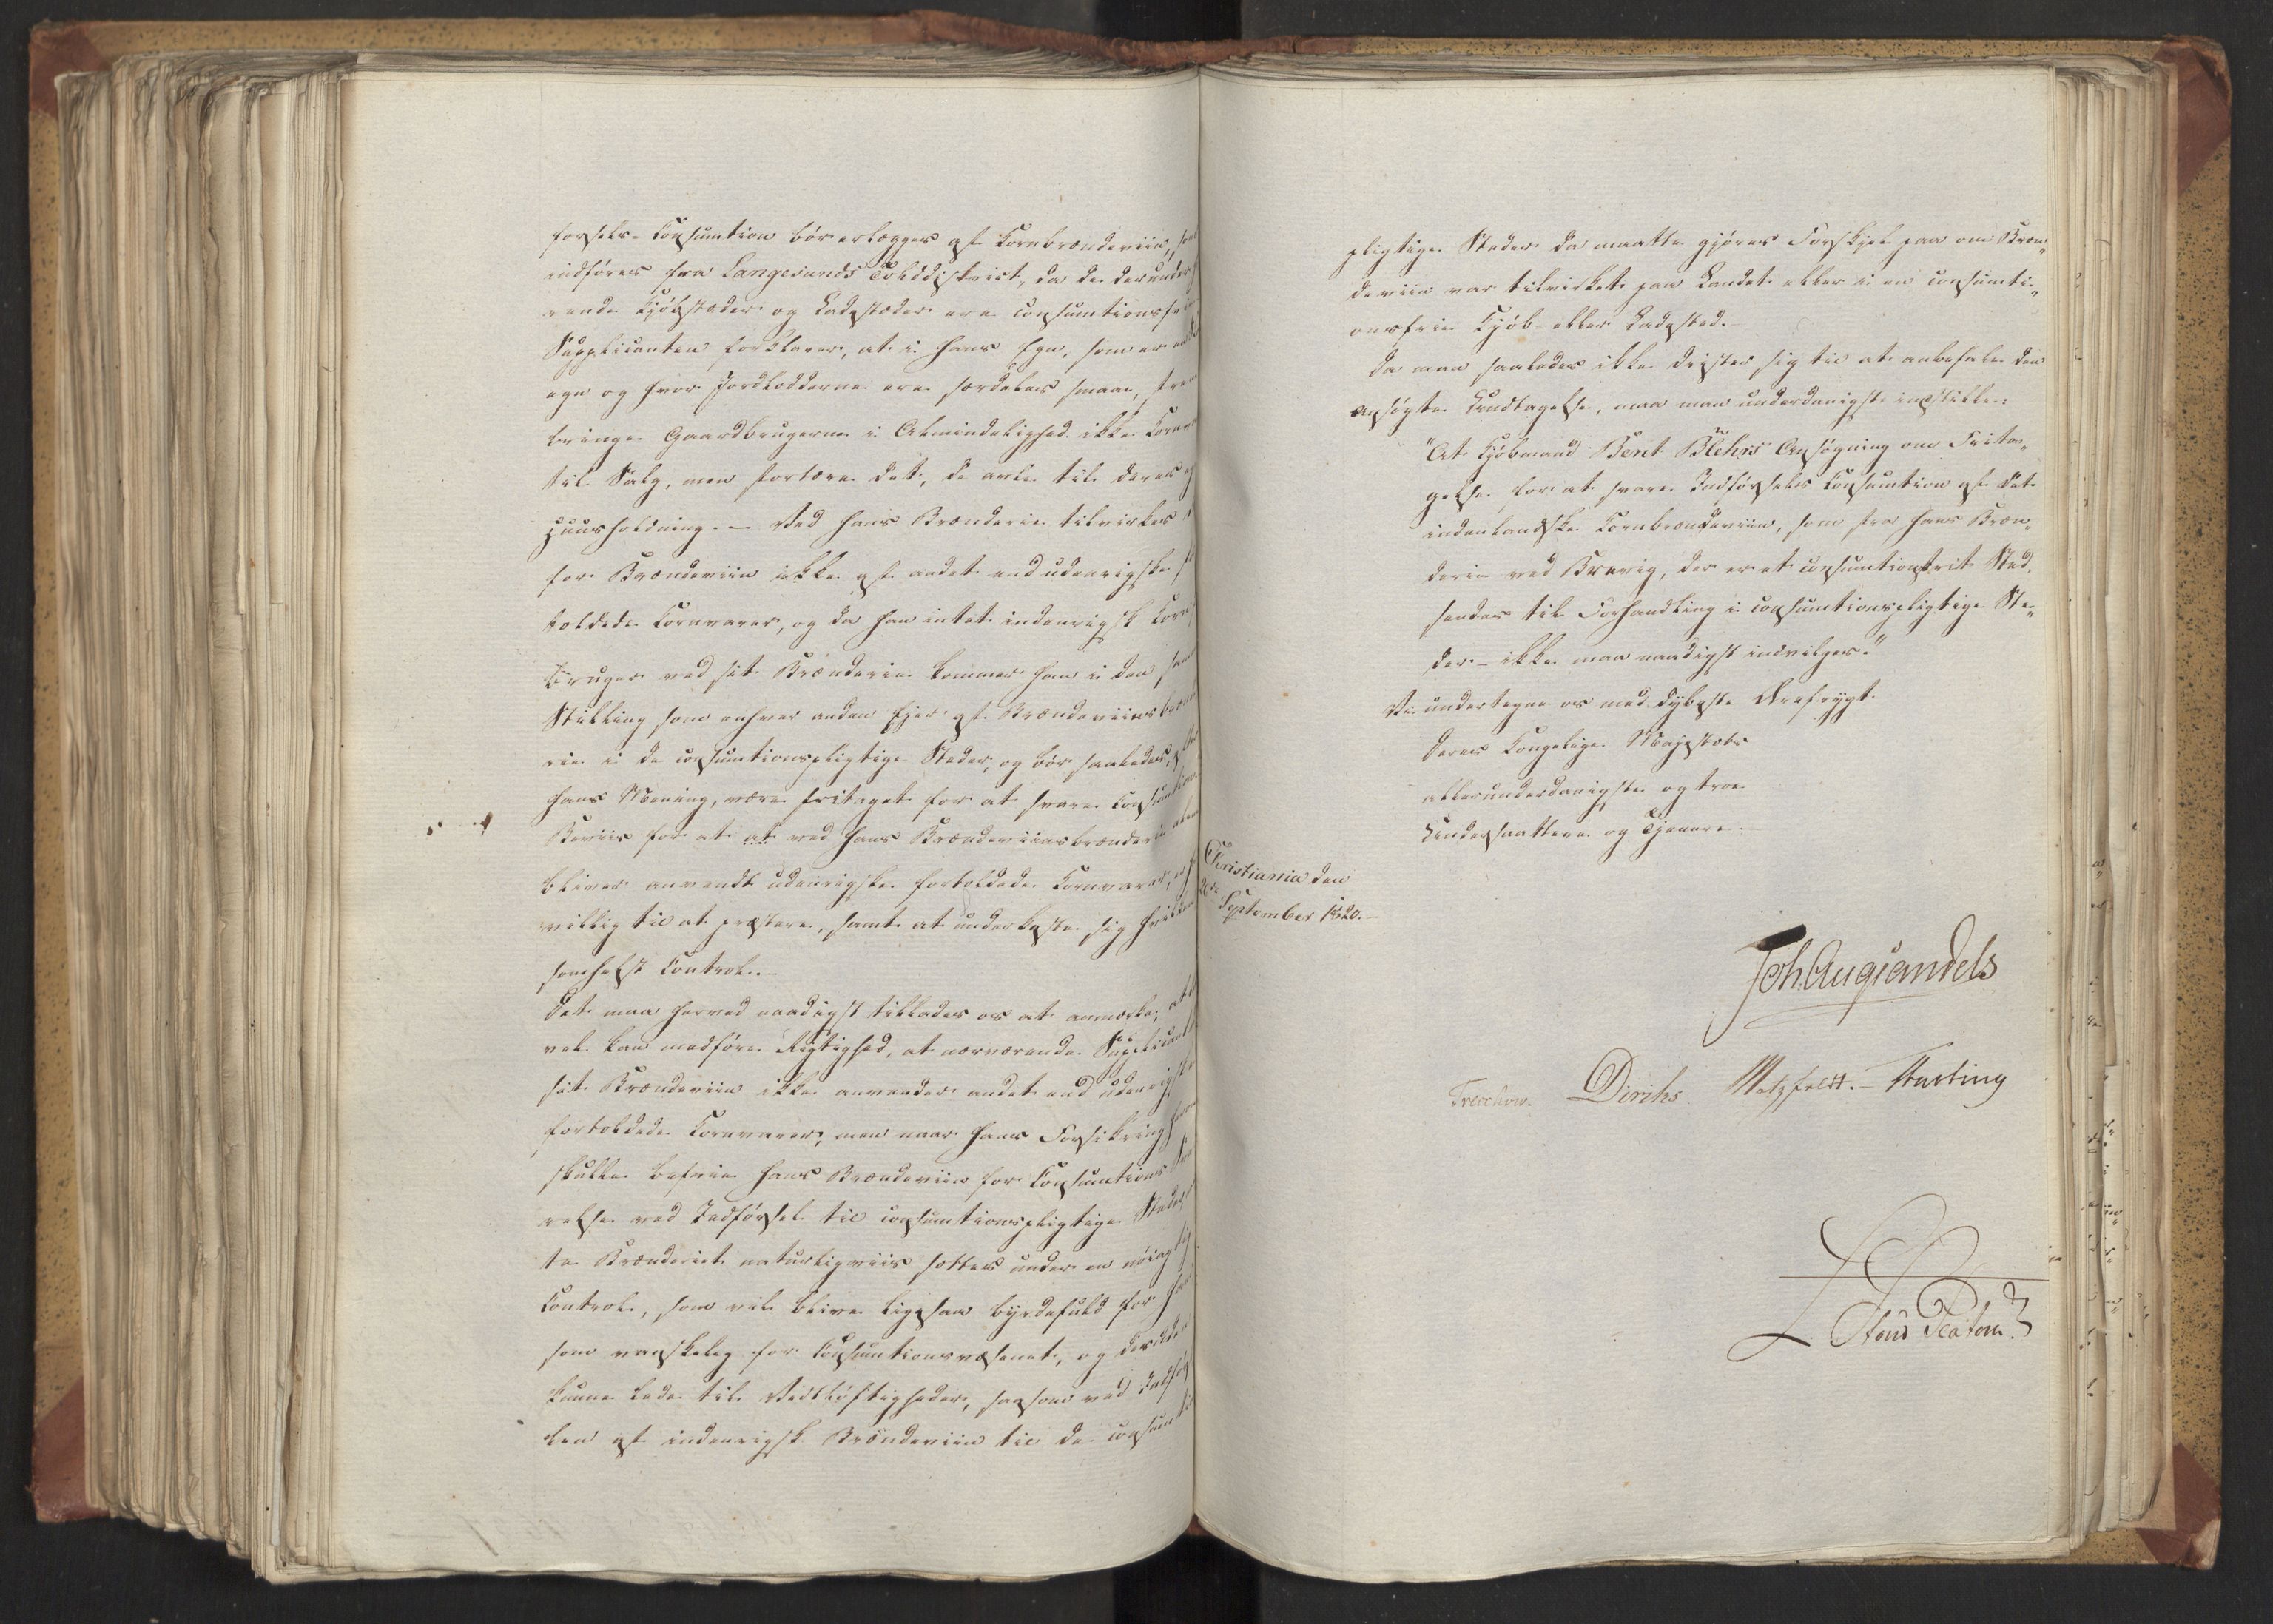 førsels-Consumtion bør erlægges af Kornbrændeviin, som
indføres fra Langesunds Tolddistrict, da de derunder
rende Kjøbstæder og Ladestæder ere consumtionsfrie
Supplicanten forklarer, at i hans Egn, som er en
egn og hvor Jordlodderne ere særdeles smaae,
bringe Gaardbrugerne i Almindelighed ikke Korn
til Salg, men fortære det, de avle til deres
Huusholdning. – Ved hans Brænderie tilvirkes
for Brændeviin ikke af andet end udenrigske for
toldede Kornvarer, og da han intet indenrigsk Korn
bruger ved sit Brænderie kommer han i den samme
Stilling som enhver anden Ejer af Brændeviinsbrænde
rie i de consumtionspligtige Steder, og bør saaledes, efter
hans Mening, være fritaget for at svare Consumtion
Beviis for at at ved hans Brændeviinsbrænderie alene
bliver anvendt udenrigske fortoldede Kornvarer, er han
villig til at præstere, samt at underkaste sig hvilken
somhelst Control.
Det maa herved naadigst tillades os at anmærke, at det
vel kan medføre Rigtighed, at nærværende Supplicant til
sit Brændeviin ikke anvender andet end udenrigske
fortoldede Kornvarer, men naar hans Forsikring herom
skulle befrie hans Brændeviin for Consumtions Sva
relse ved Indførsel til consumtionspligtige Steder
te Brænderiet naturligviis sættes under en nøiagtig
Control, som vil blive ligesaa byrdefuld for ham
som vanskelig for Consumtionsvæsenet, og desuden
kunne lede til Vidtløftigheder, saasom ved Indførs
len af indenrigsk Brændeviin til de consumtions
pligtige Steder da maatte gjøres Forskjel paa om Bræn„
deviin var tilvirket paa Landet eller i en consumti„
onsfrie Kjøb- eller Ladested.
Da man saaledes ikke drister sig til at anbefale den
ansøgte Undtagelse, maa man underdanigst indstille:
"At Kjøbmand Bent Blehrs Ansøgning om Frita„
gelse for at svare Indførsels Consumtion af det
indenlandske Kornbrændeviin, som fra hans Bræn„
derie ved Brevig, der er et consumtionsfrit Sted,
sendes til Forhandling i consumtionspligtige Ste„
der – ikke maa naadigst indvilges."
Vi undertegne os med dybeste Ærefrygt.
Deres Kongelige Majestæts
allerunderdanigste og troe
Undersaattere og Tjenere.
Christiania den
September 1820.
Joh. Aug. Sandels
Treschow. Diriks Motzfeldt. – Fasting